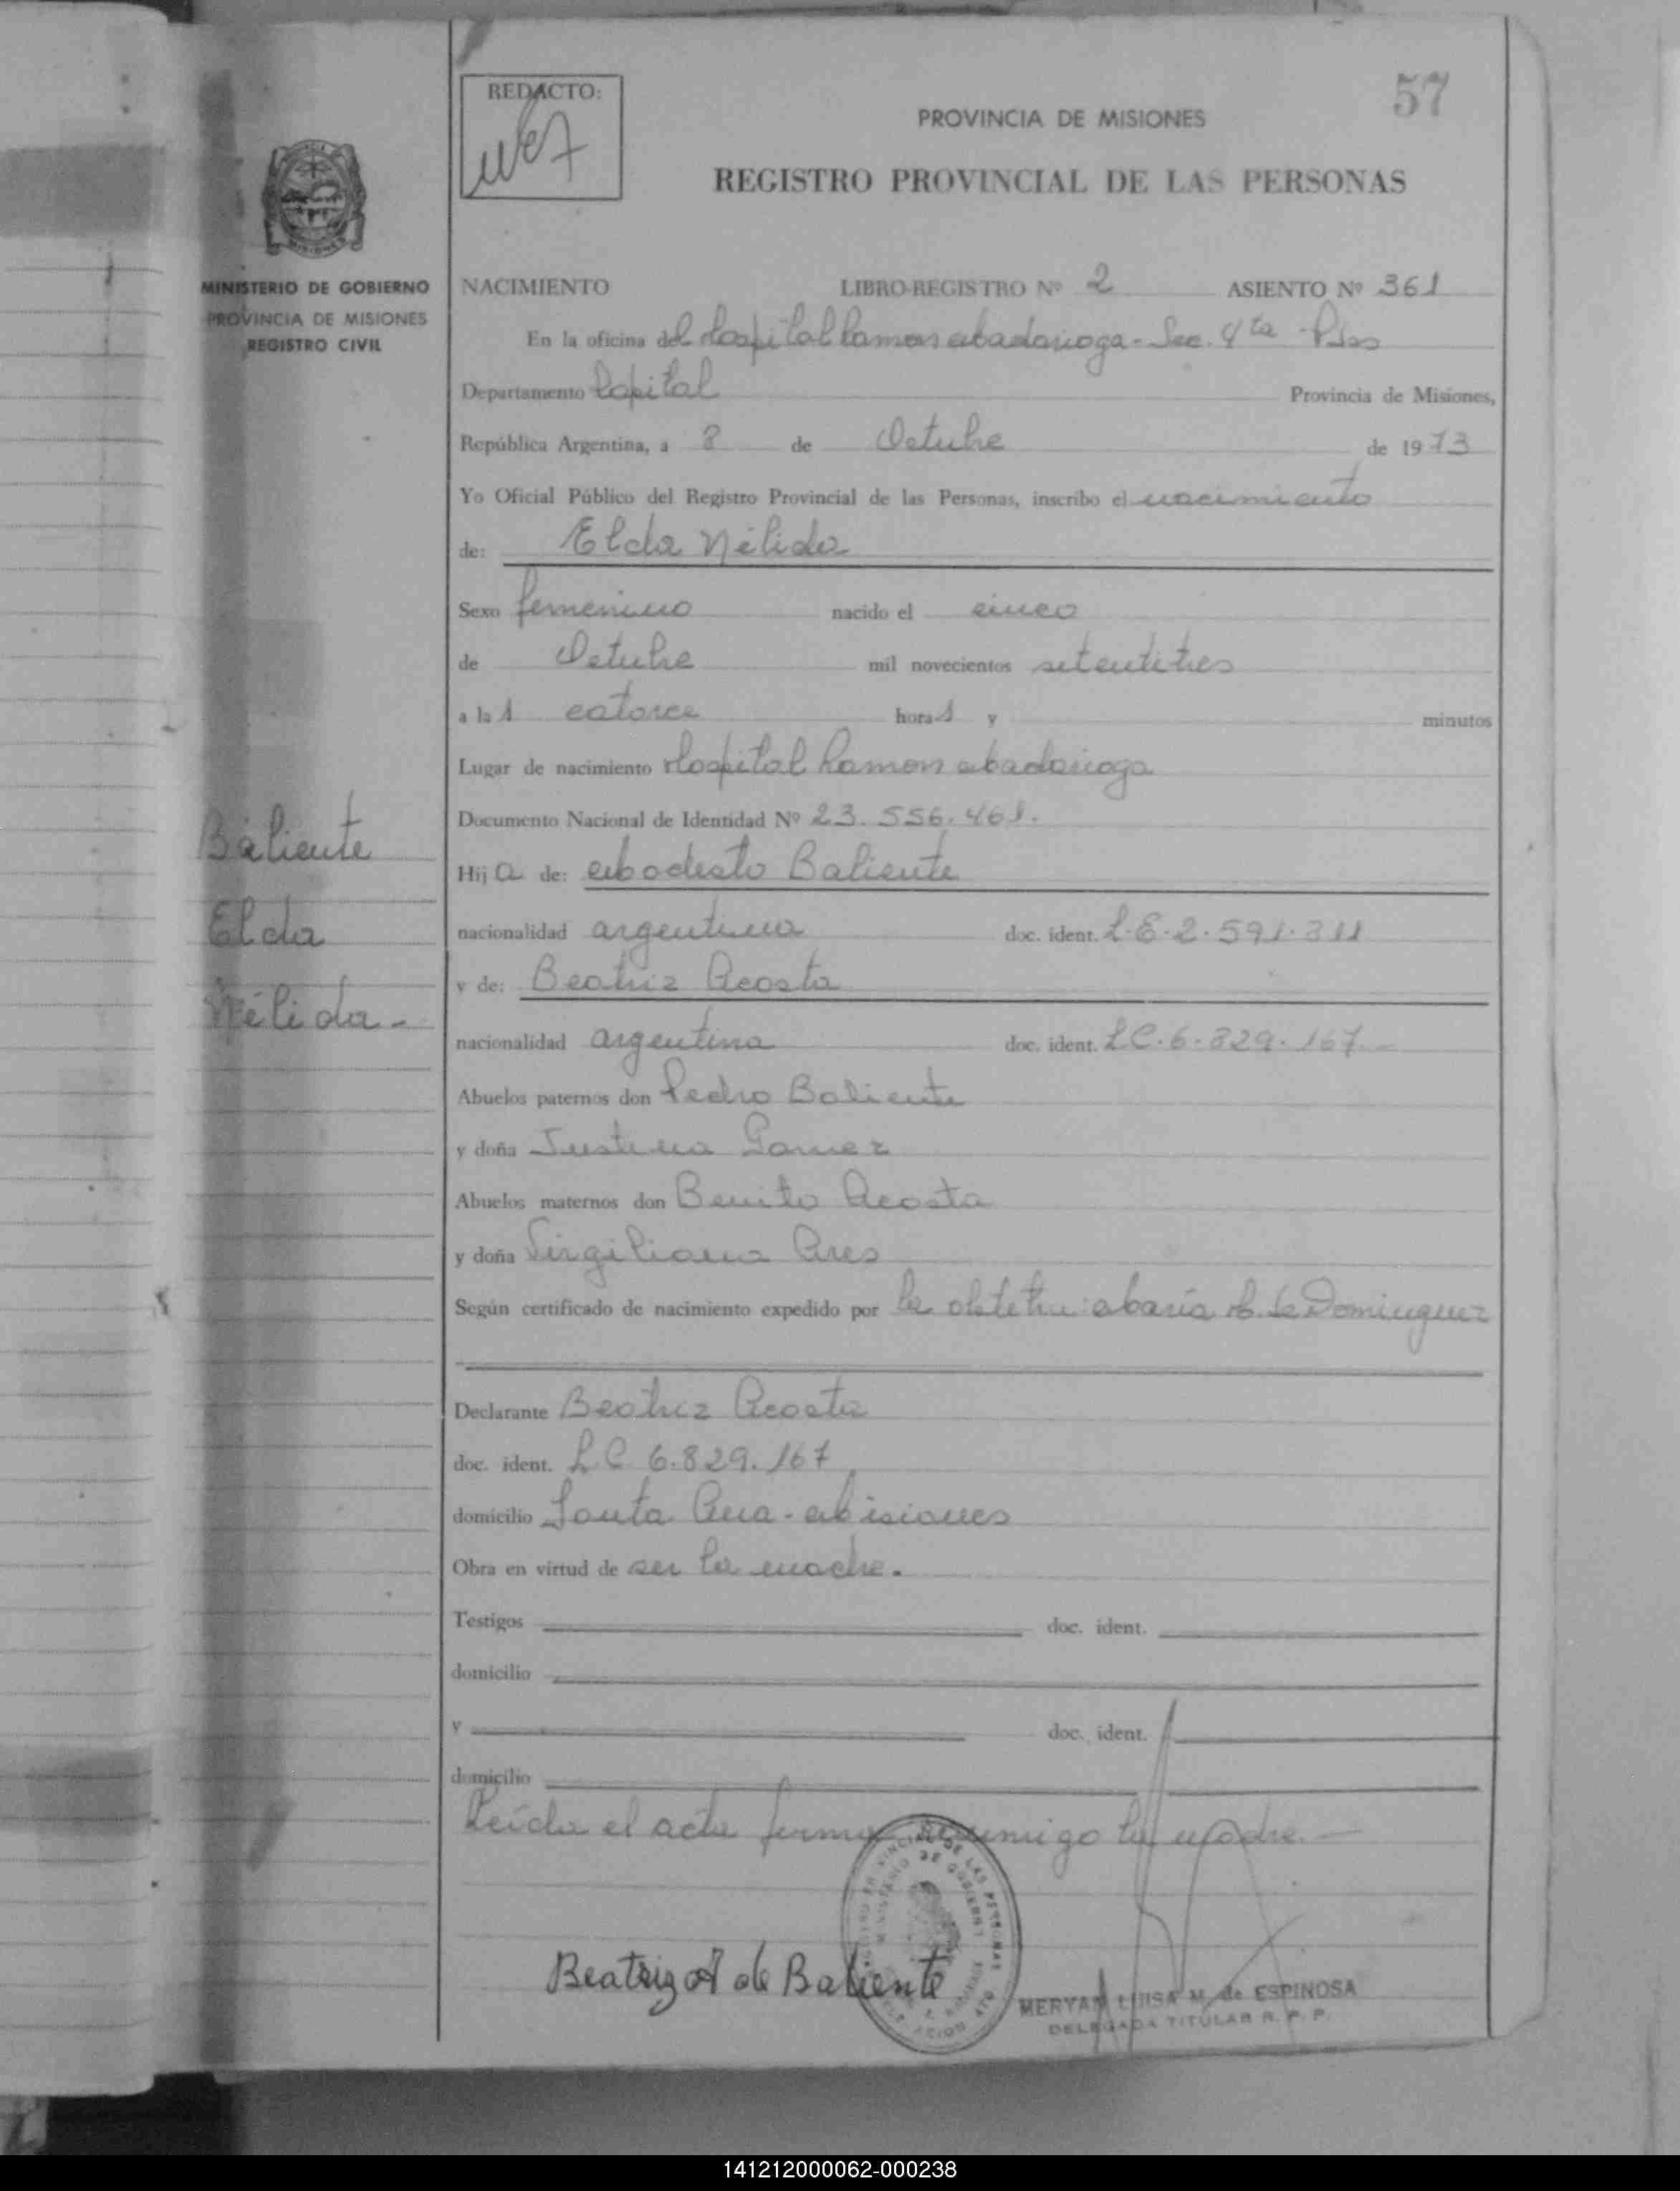 57
REDACTO:
PROVINCIA DE MISIONES
REGISTRO PROVINCIAL DE LAS PERSONAS
MINISTERIO DE GOBIERNO
PROVINCIA DE MISIONES
REGISTRO CIVIL
NACIMIENTO LIBRO-REGISTRO Nº 2 ASIENTO Nº 361
En la oficina del Hospital Ramon Madariaga - Sec. 4ta - Pdas
Departamento Capital Provincia de Misiones,
República Argentina, a 8 de Octubre de 1973
Yo Oficial Público del Registro Provincial de las Personas, inscribo el nacimiento
de: Elda Nélida
Sexo femenino nacido el cinco
de Octubre mil novecientos setentitres
a las catorce horas y minutos
Lugar de nacimiento Hospital Ramon Madariaga
Documento Nacional de Identidad Nº 23.556.461.
Baliente
Elda
Nélida-
Hija de: Modesto Baliente
nacionalidad argentina doc. ident. L.E-2.591.311
y de: Beatriz Acosta
nacionalidad argentina doc. ident. LC.6.829.167-
Abuelos paternos don Pedro Baliente
y doña Justina Gomez
Abuelos maternos don Benito Acosta
y doña Virgiliana Ares
Según certificado de nacimiento expedido por la obstetra: Maria de Dominguez
Declarante Beatriz Acosta
doc. ident. L.C 6.829.167
domicilio Santa Ana - Misiones
Obra en virtud de ser la madre.
Testigos doc. ident.
domicilio
y doc. ident.
domicilio
Leída el acta firma conmigo la madre.-
Beatriz A de Baliente
MERYAN LUISA M. de ESPINOSA
DELEGADA TITULAR R. P. P.
141212000062-000238